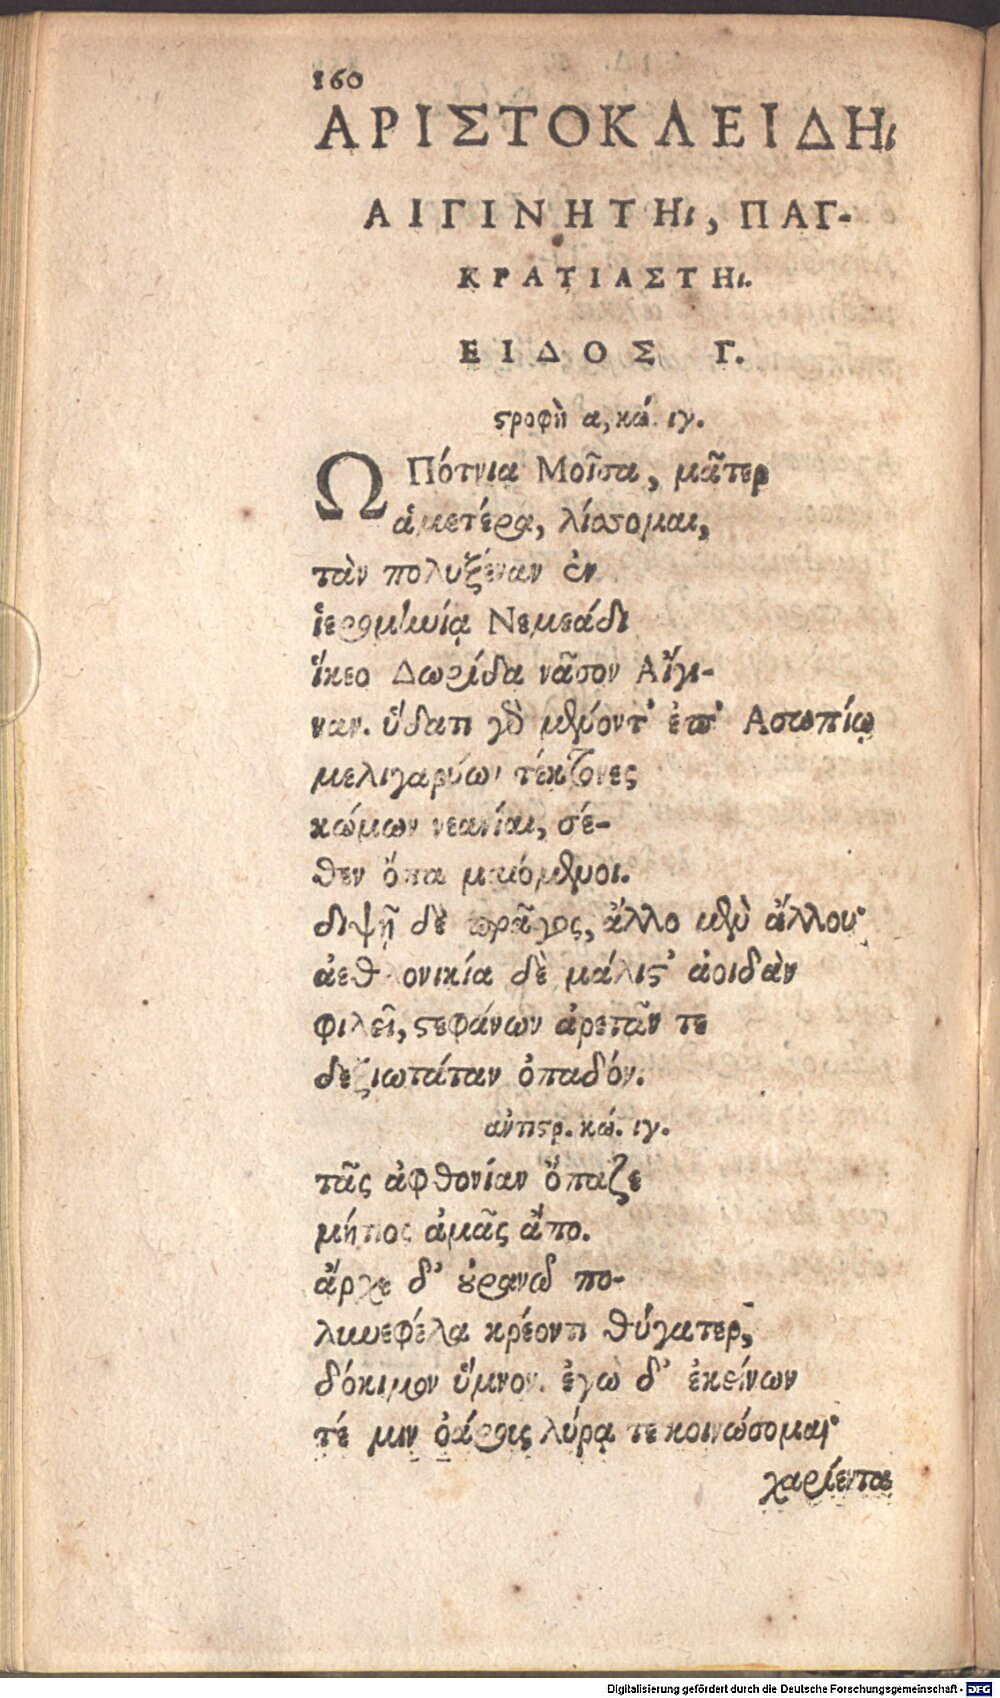 160
ΑΡΙΣΤΟΚΛΕΙΔΗι
ΑΙΓΙΝΗΤΗι, ΠΑΓ-
ΚΡΑΤΙΑΣΤΗι.
ΕΙΔΟΣ Γ.
ϛροφὴ α, κώ. ιγ.
Ω Πότνια Μοῖσα, μᾶτερ
ἁμετέρα, λίσσομαι,
τὰν πολυξέναν ἐν
ἱερομηνίᾳ Νεμεάδι
ἵκεο Δωρίδα νᾶσον Αἴγι-
ναν. ὕδατι γὸ μένοντ' ἐπ' Ασωπίῳ
μελιγαρύων τέκτονες
κώμων νεανίαι, σέ-
θεν ὄπα μαιόμενοι.
διψῇ δὲ πρᾶγος, ἄλλο μὲν ἄλλου·
ἀεθλονικία δὲ μάλιϛ' ἀοιδὰν
φιλεῖ, ϛεφάνων ἀρετᾶν τε
δεξιωτάταν ὀπαδόν.
ἀντιϛρ. κώ. ιγ.
τᾶς ἀφθονίαν ὄπαζε
μήτιος ἀμᾶς ἄπο.
ἄρχε δ' ȣ̓ρανῶ πο-
λυνεφέλα κρέοντι θύγατερ,
δόκιμον ὕμνον. ἐγὼ δ' ἐκείνων
τέ μιν ὀάροις λύρᾳ τε κοινώσομαι·
χαρίεντα
Digitalisierung gefördert durch die Deutsche Forschungsgemeinschaft - DFG